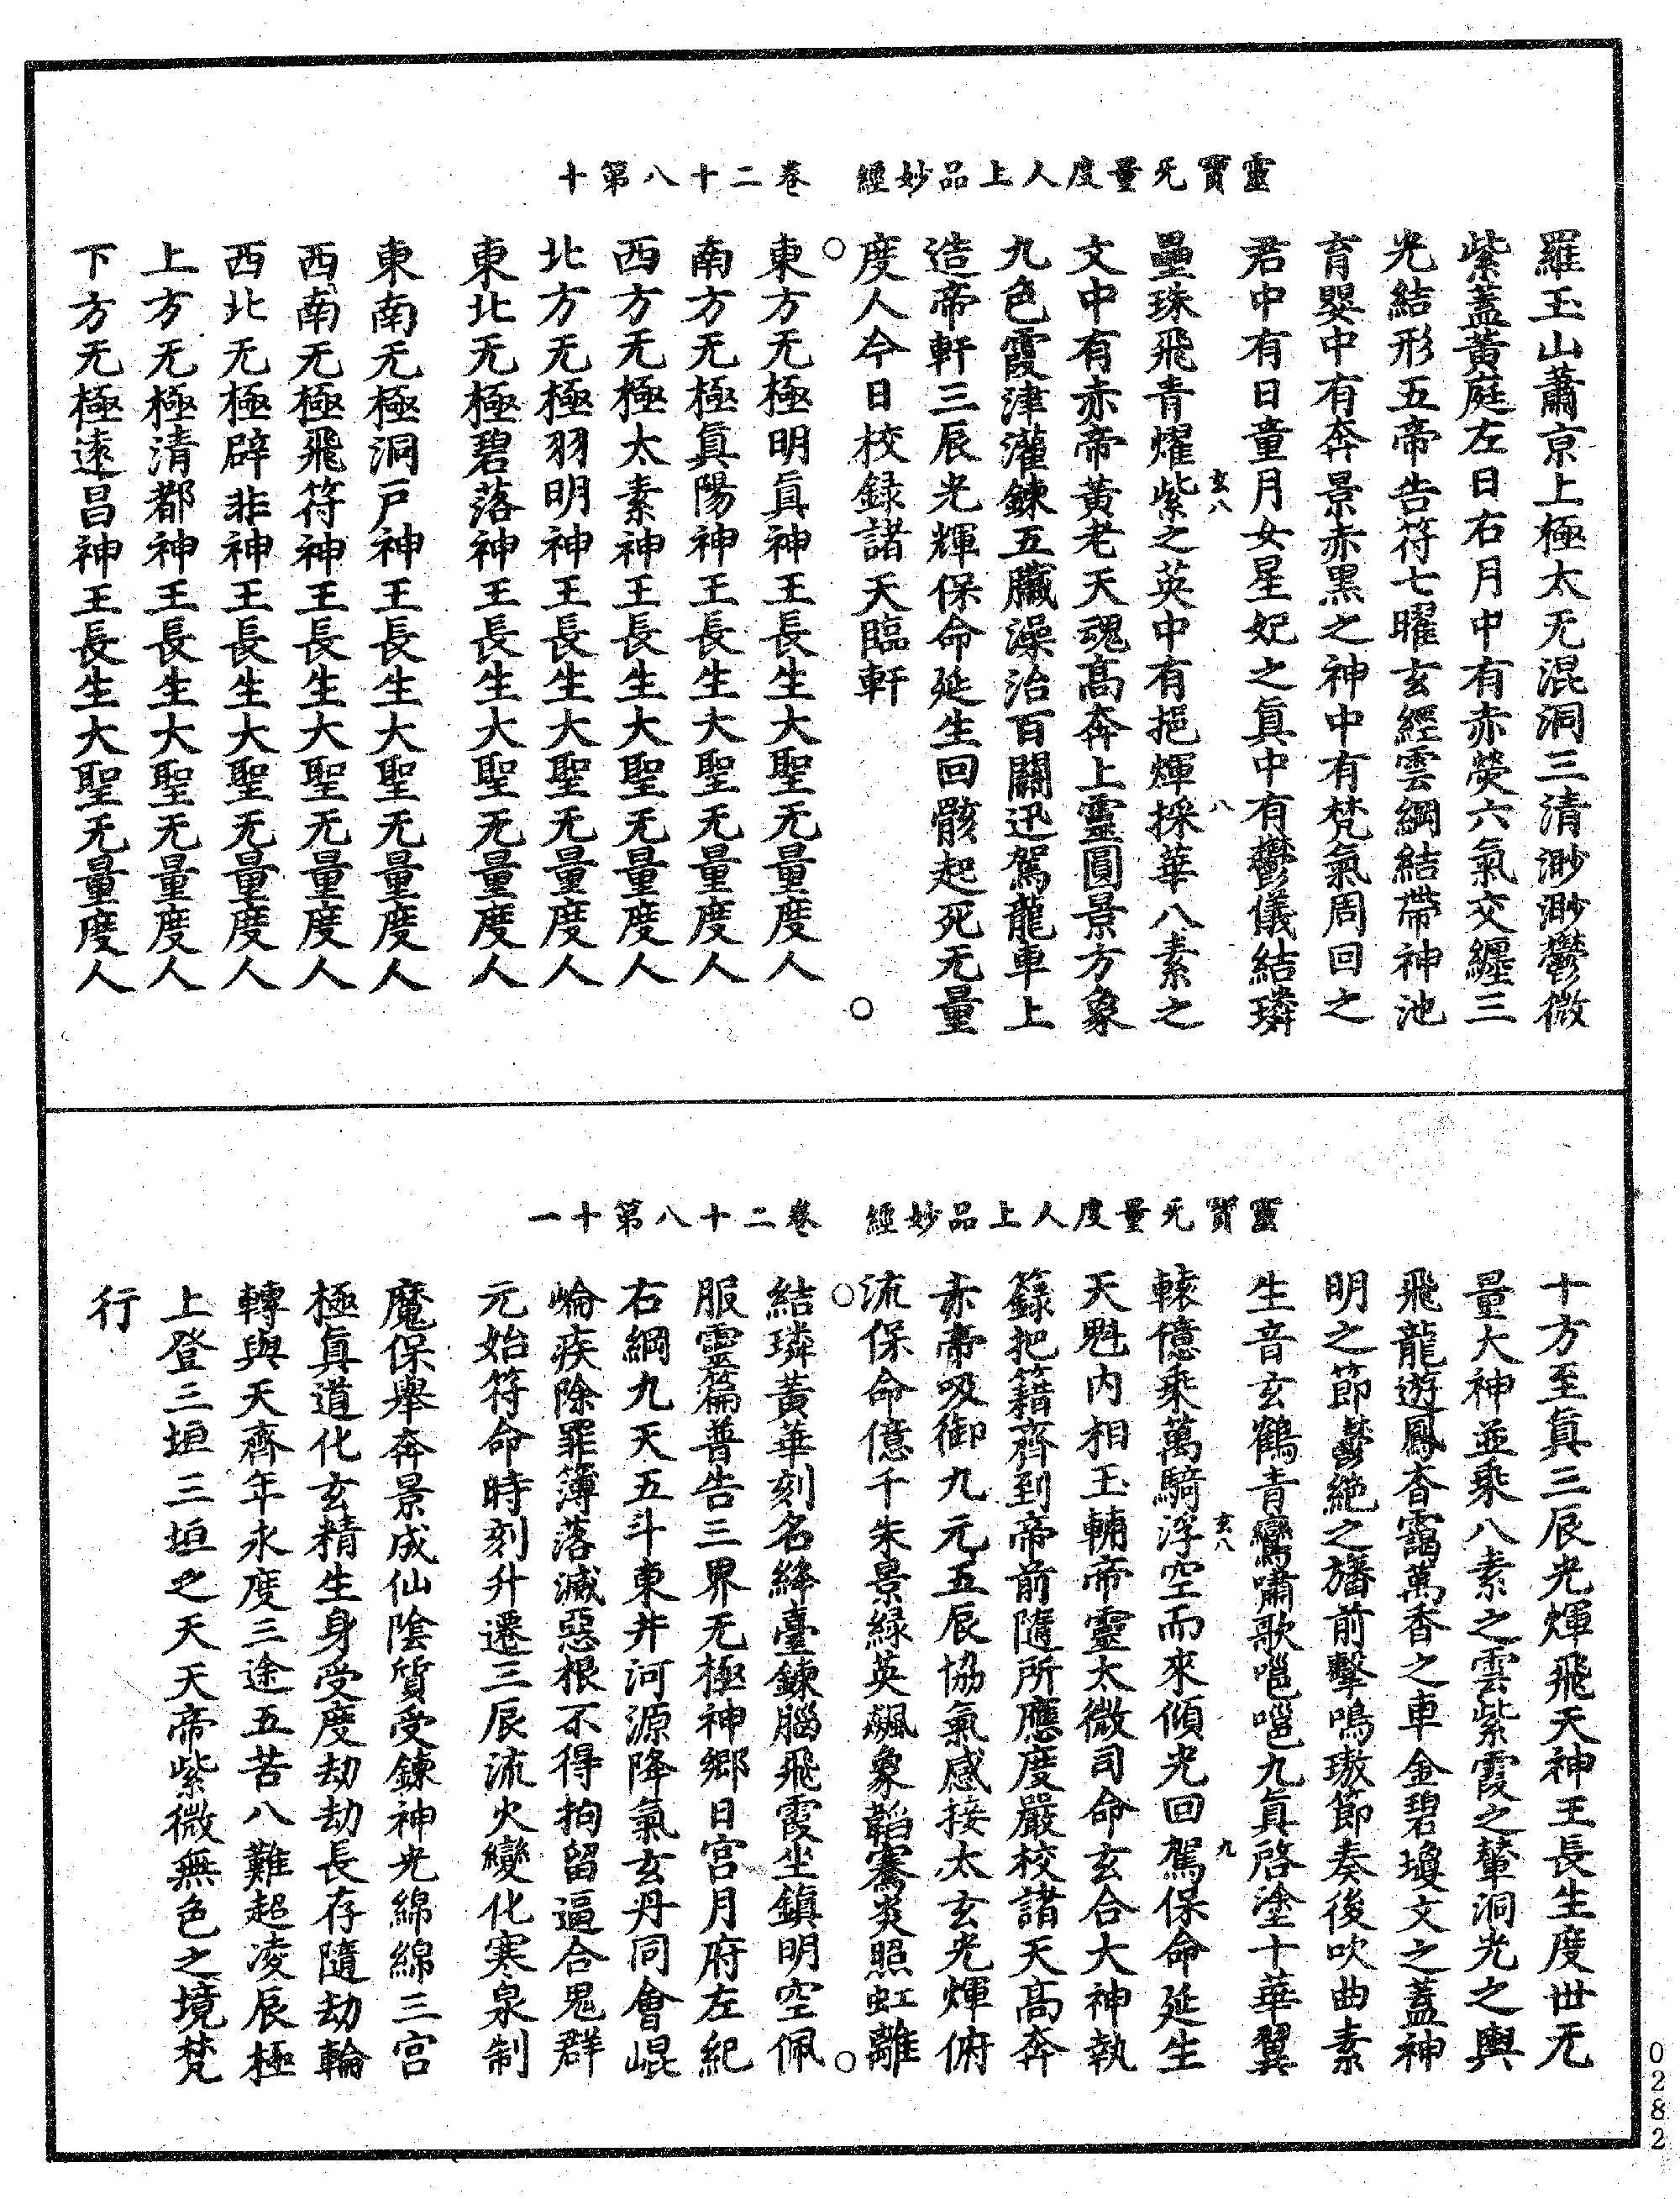 靈寶无量度人上品妙經　卷二十八第十
羅玉山蕭京上極太无混洞三清渺渺鬱微
紫蓋黃庭左日右月中有赤熒六氣交纏三
光結形五帝告符七曜玄經雲綱結帶神池
育嬰中有奔景赤黑之神中有梵氣周回之
君中有日童月女星妃之真中有鬱儀結璘
玄八　八
壘珠飛青燿紫之英中有挹煇採華八素之
文中有赤帝黃老天魂高奔上靈圓景方象
九色霞津灌鍊五臟澡治百關迅駕龍車上
造帝軒三辰光輝保命延生回骸起死无量
度人今日校録諸天臨軒　○
○
東方无極明真神王長生大聖无量度人
南方无極真陽神王長生大聖无量度人
西方无極太素神王長生大聖无量度人
北方无極羽明神王長生大聖无量度人
東北无極碧落神王長生大聖无量度人
東南无極洞戸神王長生大聖无量度人
西南无極飛符神王長生大聖无量度人
西北无極辟非神王長生大聖无量度人
上方无極清都神王長生大聖无量度人
下方无極遠昌神王長生大聖无量度人
靈寶无量度人上品妙經　卷二十八第十一
十方至真三辰光煇飛天神王長生度世无
量大神並乘八素之雲紫霞之輦洞光之輿
飛龍遊鳳杳靄萬香之車金碧瓊文之蓋神
明之節鬱絶之旛前擊鳴璈節奏後吹曲素
生音玄鶴青鸞嘯歌嗈嗈九真啓塗十華翼
玄八　九
轅億乘萬騎浮空而來傾光回駕保命延生
天魁內相玉輔帝靈太微司命玄合大神執
籙把籍齊到帝前隨所應度嚴校諸天高奔
赤帝吸御九元五辰協氣感接太玄光煇俯
流保命億千朱景緑英飈象韜騫炎照虹離
○　○
結璘黃華刻名絳臺鍊腦飛霞坐鎮明空佩
服靈篇普告三界无極神鄉日宮月府左紀
右綱九天五斗東井河源降氣玄丹同會崐
崘疾除罪簿落滅惡根不得拘留逼合鬼群
元始符命時刻升遷三辰流火變化寒泉制
魔保舉奔景成仙陰質受鍊神光綿綿三宮
極真道化玄精生身受度劫劫長存隨劫輪
轉與天齊年永度三途五苦八難超凌辰極
上登三垣三垣之天天帝紫微無色之境梵
行
0282